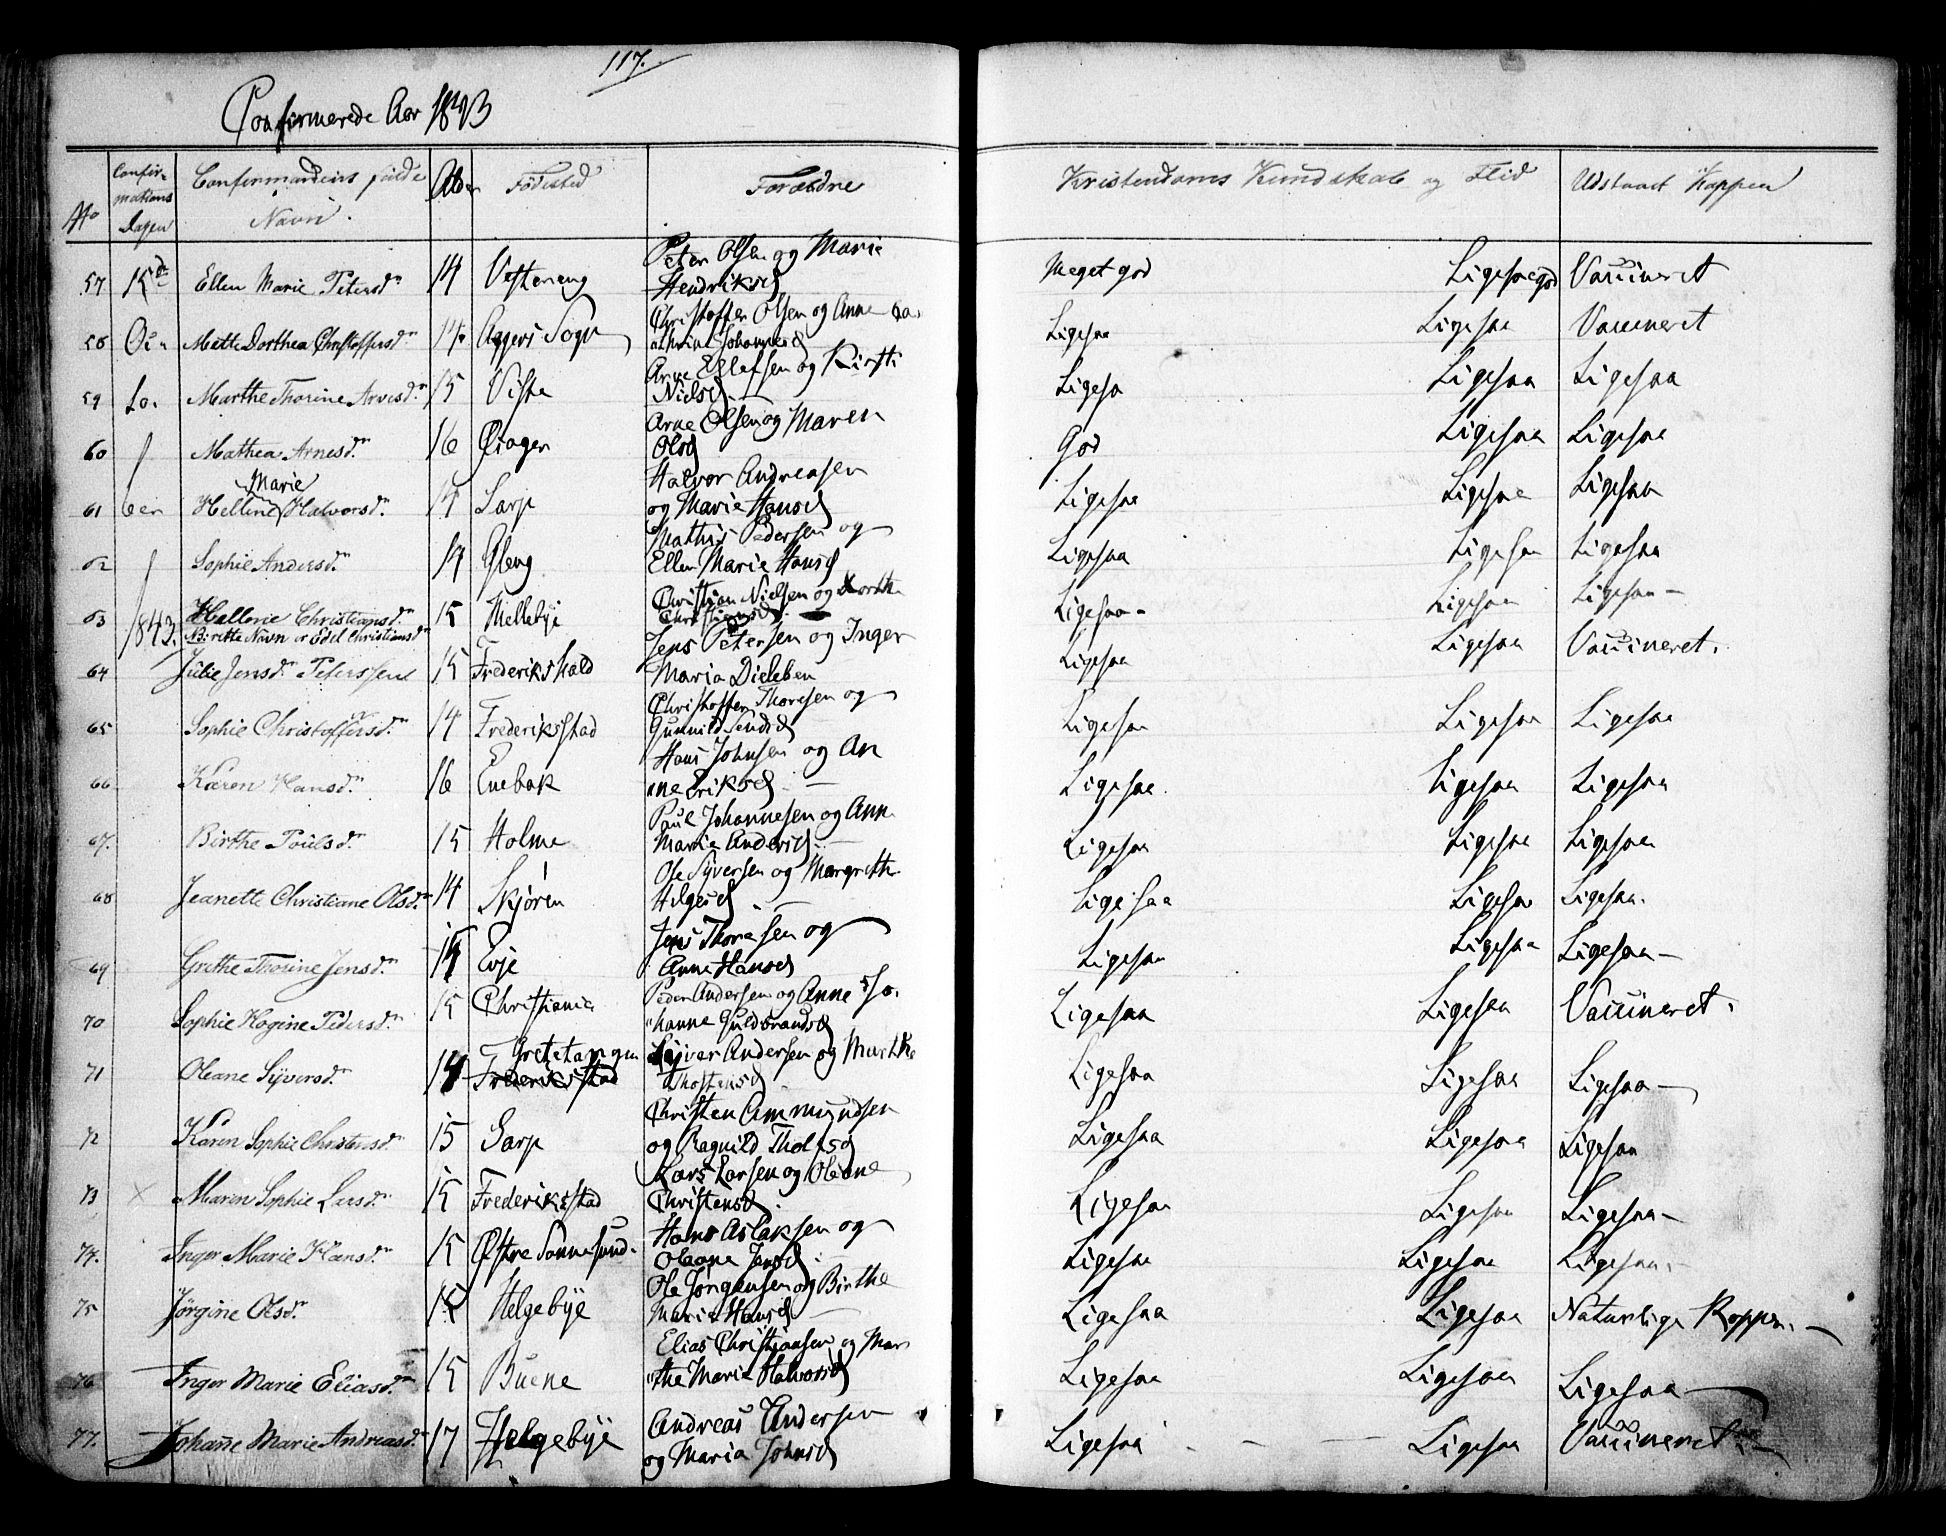 117.
Confirmerede Aar 1843
No
Confirmations Dagen
Confirmandens fulde Navn.
Alder
Födested
Forældre
Kristendoms Kundskab og Flid
Udstaaet Koppen
57 15de Ellen Marie Petersdr 14 Vestereng Peter Olsen og Marie Hendriksd Meget god Ligesaa god Vaccineret
58 Oc- Mette Dorthea Christoffersdr 14. Aggers Sogn Christoffer Olsen og Anne Ca- athrine Johannesd Ligesaa Ligesaa Vaccineret
59 to- Marthe Thorine Arnesdr 15 Viste Arne Ellefsen og Kirsti Nielsd Ligesa Ligesaa Ligesaa
60 Mathea Arnesdr 16 Arne Olsen og Maren Olsd God Ligesaa Ligesaa
61 ber Helline Marie Halvorsdr 14 Sarp Halvor Andreasen og Marie Hansd Ligesaa Ligesaa Ligesaa
62 Sophie Andersdr 14 Gleng Mathis Pedersen og Ellen Marie Hansd Ligesaa Ligesaa Ligesaa
63 1843. Hellerie Christiansdr 15 Mellebye Christian Nielsen og Dorthe Christiansd Ligesaa - Ligesaa Ligesaa -
Birette Navn er Edel Christiansdr
64 Julie Jensdr Peterssen 15 Frederikshald Jens Petersen og Inger Maria Dieleben Ligesaa Ligesaa Vaccineret.
65 Sophie Christoffersdr 14 Frederiksstad Christoffer Thoresen og Gunnild Ligesaa Ligesaa Ligesaa
66 Karen Hansdr 16 Enebak Hans Johnsen og An ne Eriksd Ligesaa Ligesaa Ligesaa
67. Birthe Poulsdr 15 Holme Paul Johannesen og Ann Marie Andersd Ligesaa Ligesaa Ligesaa
68 Jeanette Christiane Olsdr 14 Skjøren Ole Syversen og Margrethe Helgesd Ligesaa Ligesaa Ligesaa.
69 Grethe Thorine Jensdr 15 Evje Jens Thoresen og Anne Hansd Ligesaa Ligesaa Ligesaa -
70 Sophie Hogine Pedersdr 15 Christiania Peder Andersen og Anne Jo- hanne Guldbrandsd Ligesaa Ligesaa Vaccineret.
71 Oleane Syversdr 14 Gretetangen Frederiksstad Syver Andersen og Marthe Thostensd Ligesaa Ligesaa Ligesaa -
72 Karen Sophie Christensdr 15 Sarp Christen Ammundsen og Ragnild Tholfsd Ligesaa Ligesaa Ligesaa
73 × Maren Sophie Larsdr 15 Frederiksstad Lars Larsen og Oleane Christensd. Ligesaa Ligesaa Ligesaa -
74. Inger Marie Hansdr 15 Østre Sannesund. Hans Aslaksen og Oleane Jensd Ligesaa Ligesaa Ligesaa. -
75 Jörgine Olsdr 15 Helgebye Ole Jørgensen og Birthe Marie Hansd Ligesaa Ligesaa Naturlige Kopper. -
76 Inger Marie Eliasdr 15 Buene Elias Christiansen og Mar the Maria Halvorsd Ligesaa Ligesaa Ligesaa -
77. Johanne Marie Andreasdr 17 Helgebye Andreas Andersen og Maria Johnsd Ligesaa - - - Ligesaa Vaccineret. -